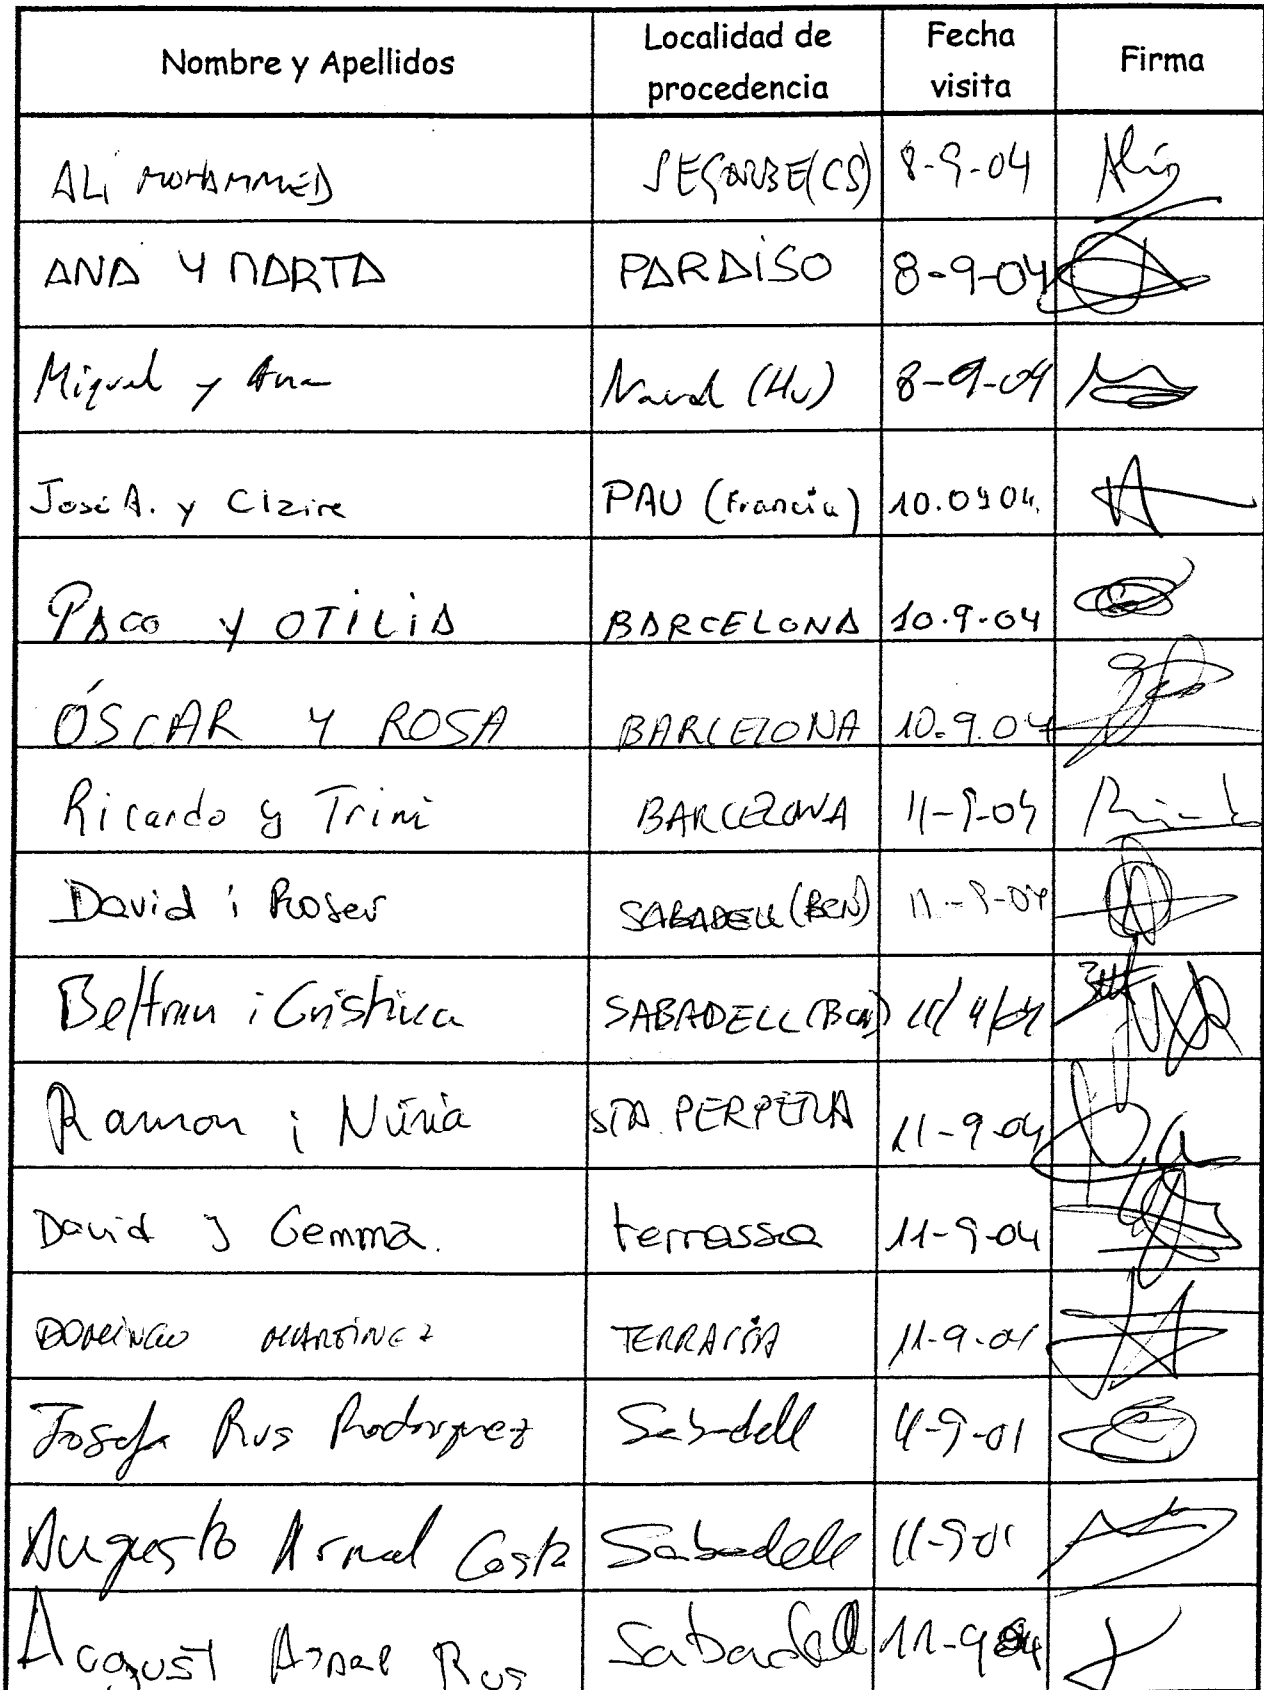 Nombre y Apellidos Localidad de procedencia Fecha visita Firma
ALI MOHAMMED SEGORBE (CS) 8-9-04
ANA Y MARTA PARAISO 8-9-04
Miguel y Ana Naval (Hu) 8-9-04
José A. y Claire PAU (Francia) 10.09 04.
PACO Y OTILIA BARCELONA 10.9.04
ÓSCAR Y ROSA BARCELONA 10.9.04
Ricardo y Trini BARCELONA 11-9-04
David i Roser SABADELL (BCN) 11-9-04
Beltran i Cristina SABADELL (BCN) 11/9/04
Ramon i Núria STA PERPETUA 11-9-04
David y Gemma. terrassa 11-9-04
DOMINGO MARTINEZ TERRASSA 11-9-04
Josefa Rus Rodriguez Sabadell 11-9-01
Augusto Arnal Costa Sabadell 11-9-01
August Arnal Rus Sabadell 11-9-04